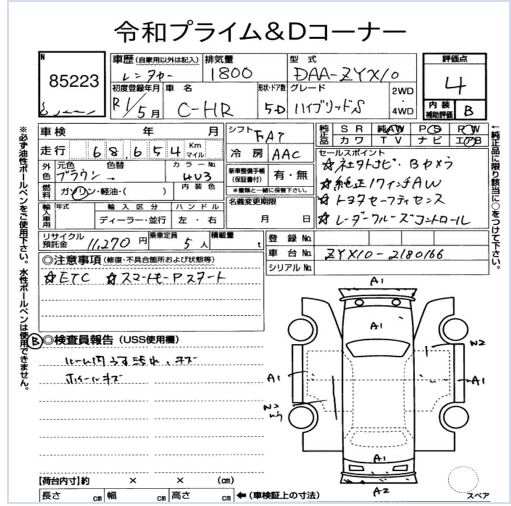 令和プライム&Dコーナー
N
85223
車歴(自家用以外は記入)
レンタカー
排気量
1800
型式
DAA-ZYX10
評価点
4
初度登録年月
R1/5月
車名
C-HR
形状・ドア数
5D
グレード
ハイブリッドS
2WD
・
4WD
内装
補助評価
B
車検 年 月
走行 68,654 Km
マイル
シフト FAT
冷房 AAC
純正品
SR AW PS PW
カワ TV ナビ エアB
外色
元色 色替
ブラウン →
カラーNo
4U3
燃料
ガソリン・軽油・( )
内装色
新車整備手帳
(保証書付)
有・無
※書類と一緒に保管下さい。
セールスポイント
☆社外ナビ Bカメラ
☆純正17インチAW
☆トヨタセーフティセンス
☆レーダークルーズコントロール
輸入車用
年式
輸入区分
ディーラー・並行
ハンドル
左・右
名義変更期限
月 日
リサイクル
預託金
11,270円
乗車定員
5人
積載量
t
登録No.
車台No.
ZYX10-2180166
シリアルNo.
◎注意事項(修復・不具合箇所および状態等)
☆ETC ☆スマートキーPスタート
B
◎検査員報告(USS使用欄)
ルーム内ウす汚れ、キズ
ホイールキズ
A1
A1
A1
A1
A1
A2
スペア
【荷台内寸】約 × × (㎝)
長さ ㎝ 幅 ㎝ 高さ ㎝
←(車検証上の寸法)
※必ず油性ボールペンをご使用下さい。水性ボールペンは使用できません。
←純正品に限り該当に○をつけて下さい。